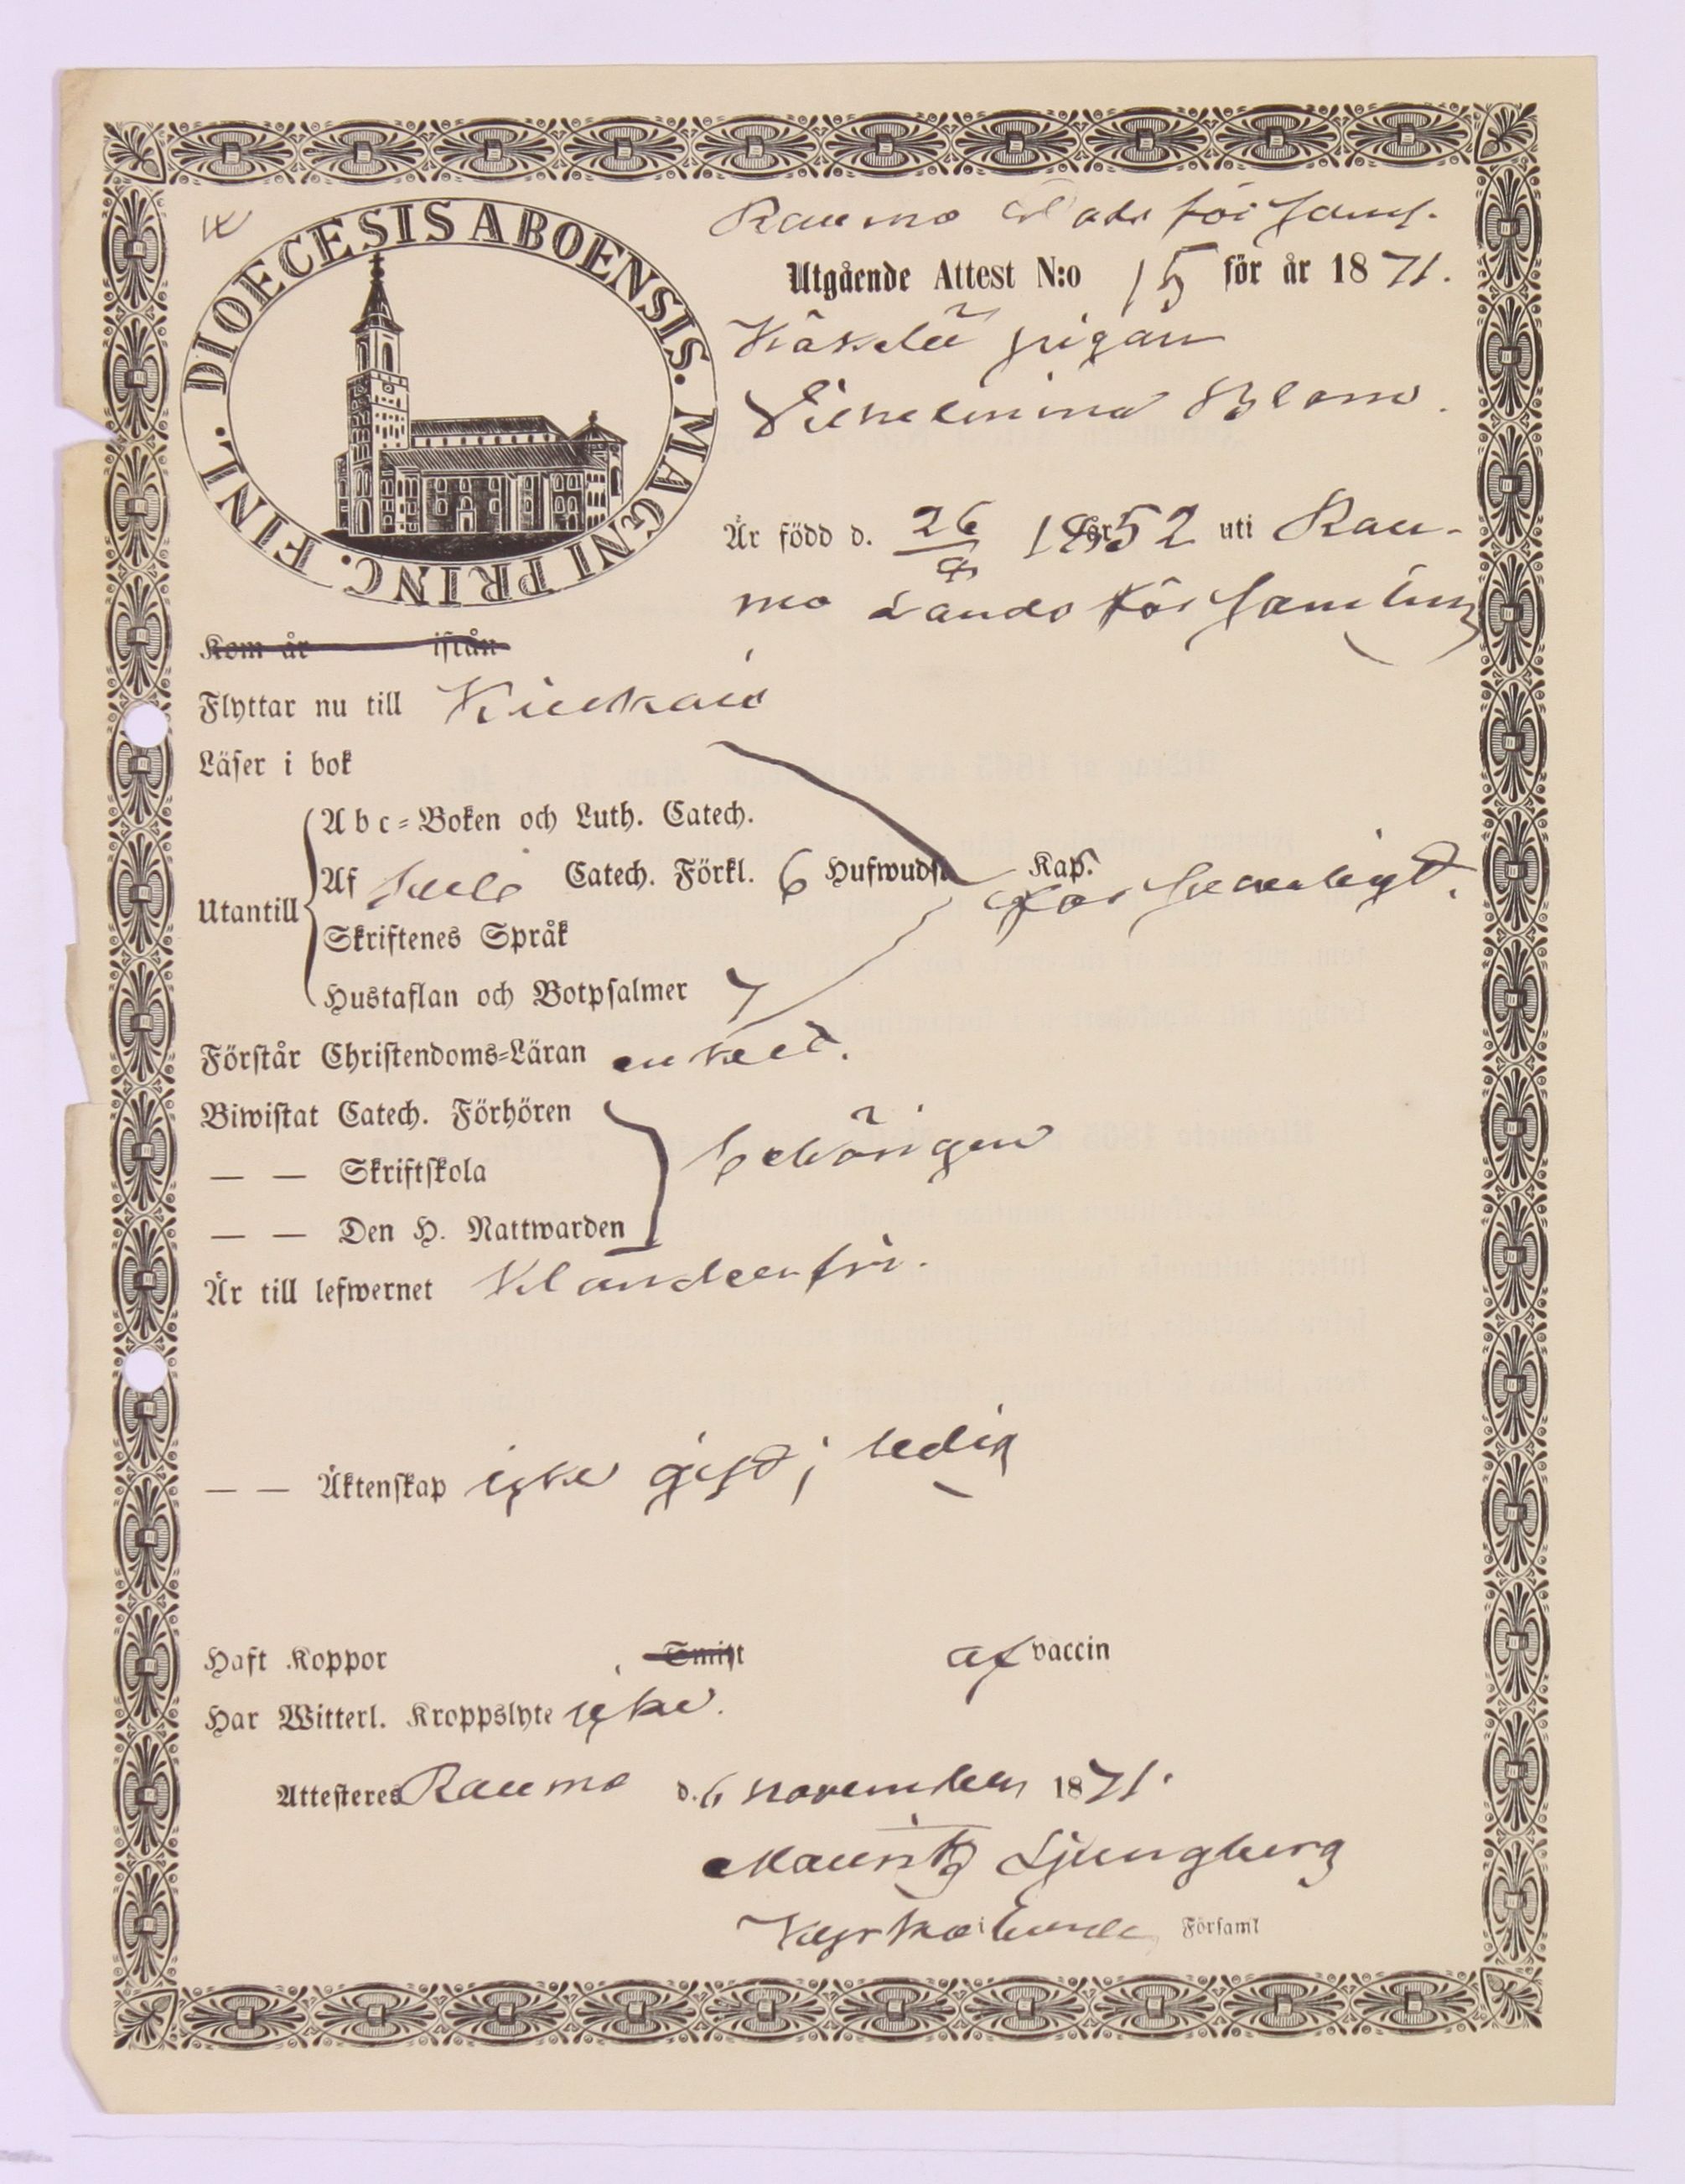 DIOECESIS ABOENSIS. MAGNI PRINC. FINL.
Raumo Stads församl.
Utgående Attest N:o 15 för år 1871.
pigan
Vilhelmina Blom.
Är född d. 26/9 1852 uti Rau-
mo Lands församling
Kom år ifrån
Flyttar nu till Kiukais
Läser i bok
Abc-Boken och Luth. Catech.
Utantill Af Catech. Förkl. 6 Hufwudst. Kap. försvarligt.
Skriftenes Språk
Hustaflan och Botpsalmer 7
Förstår Christendoms-Läran enkelt.
Biwistat Catech. Förhören
— — Skriftskola behörigen
— — Den H. Nattwarden
Är till lefwernet Klanderfri.
— — Äktenskap icke gift; ledig
Haft Koppor Smitt af vaccin
Har Witterl. Kroppslyte icke.
Attesteres Raumo d. 6 november 1871.
Mauritz Ljungberg
Kyrkoherde Församl